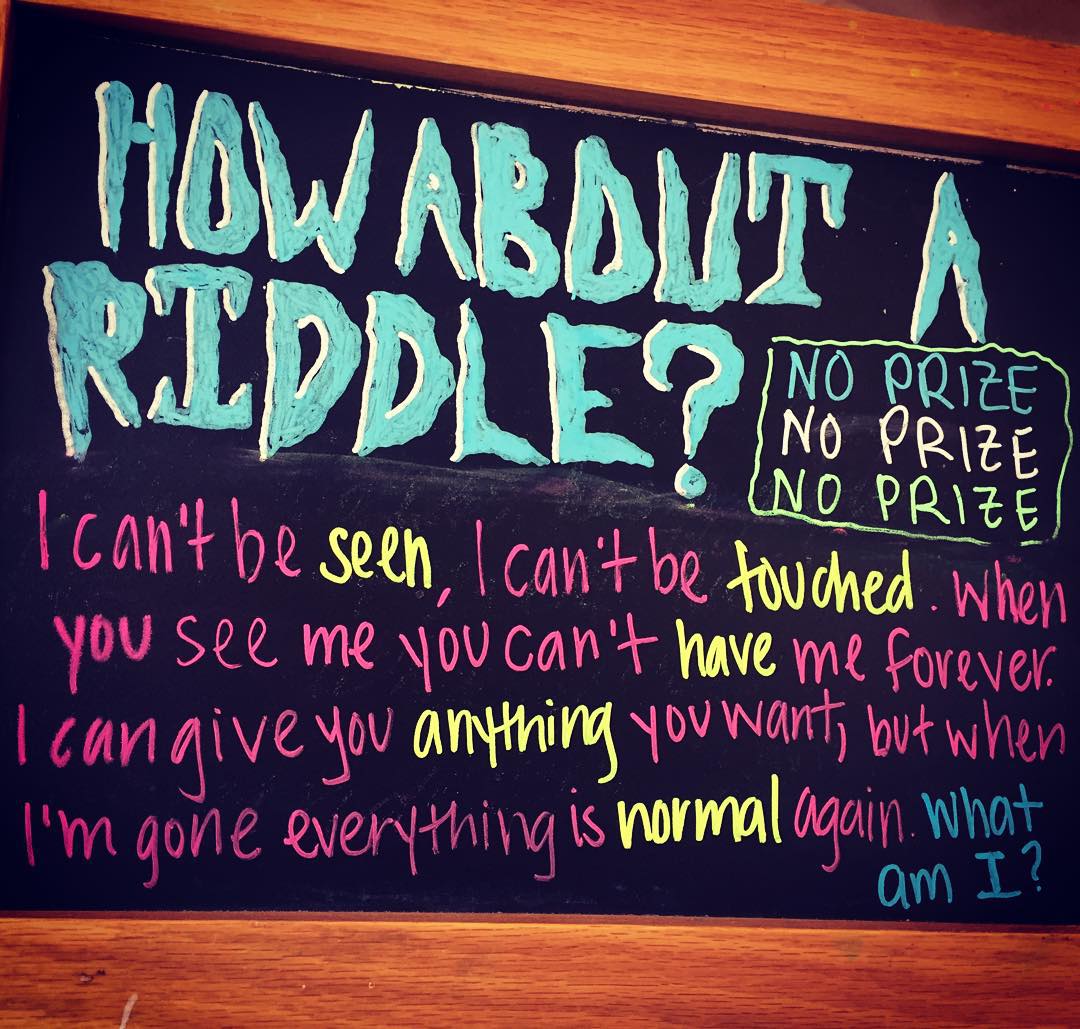 HOW ABOUT A
RIDDLE?
NO PRIZE
NO PRIZE
NO PRIZE
I can't be seen, I can't be touched. When
you see me you can't have me forever.
I can give you anything you want, but when
I'm gone everything is normal again. What
am I?